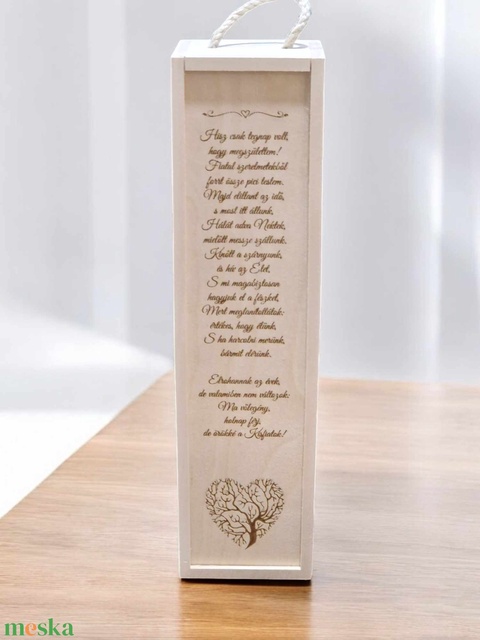 Hisz csak tegnap volt,
hogy megszülettem!
Fiatal szerelmetekből
forrt össze pici testem.
Majd elillant az idő,
s most itt állunk,
Hálát adva Nektek,
mielőtt messze szállunk.
Kinőtt a szárnyunk,
és hív az Élet,
S mi magabiztosan
hagyjuk el a fészket,
Mert megtanítottátok:
értékes, hogy élünk,
S ha harcolni merünk,
bármit elérünk.
Elrohannak az évek,
de valamiben nem változok:
Ma vőlegény,
holnap férj,
de örökké a Kisfiatok!
meska